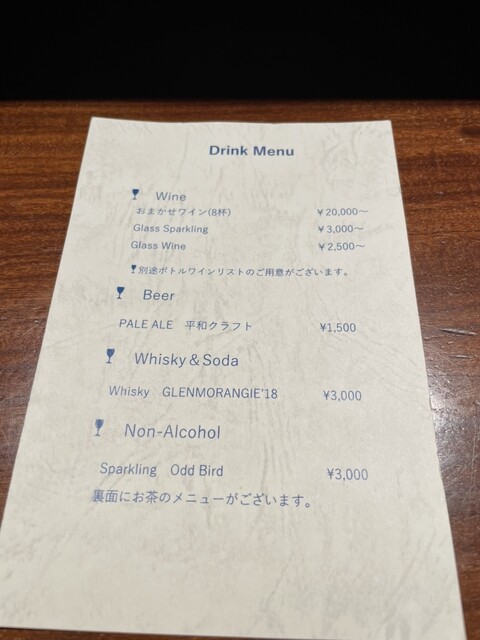 Drink Menu
Wine
おまかせワイン(8杯) ￥20,000～
Glass Sparkling ￥3,000～
Glass Wine ￥2,500～
別途ボトルワインリストのご用意がございます。
Beer
PALE ALE 平和クラフト ¥1,500
Whisky＆Soda
Whisky GLENMORANGIE'18 ¥3,000
Non-Alcohol
Sparkling Odd Bird ¥3,000
裏面にお茶のメニューがございます。